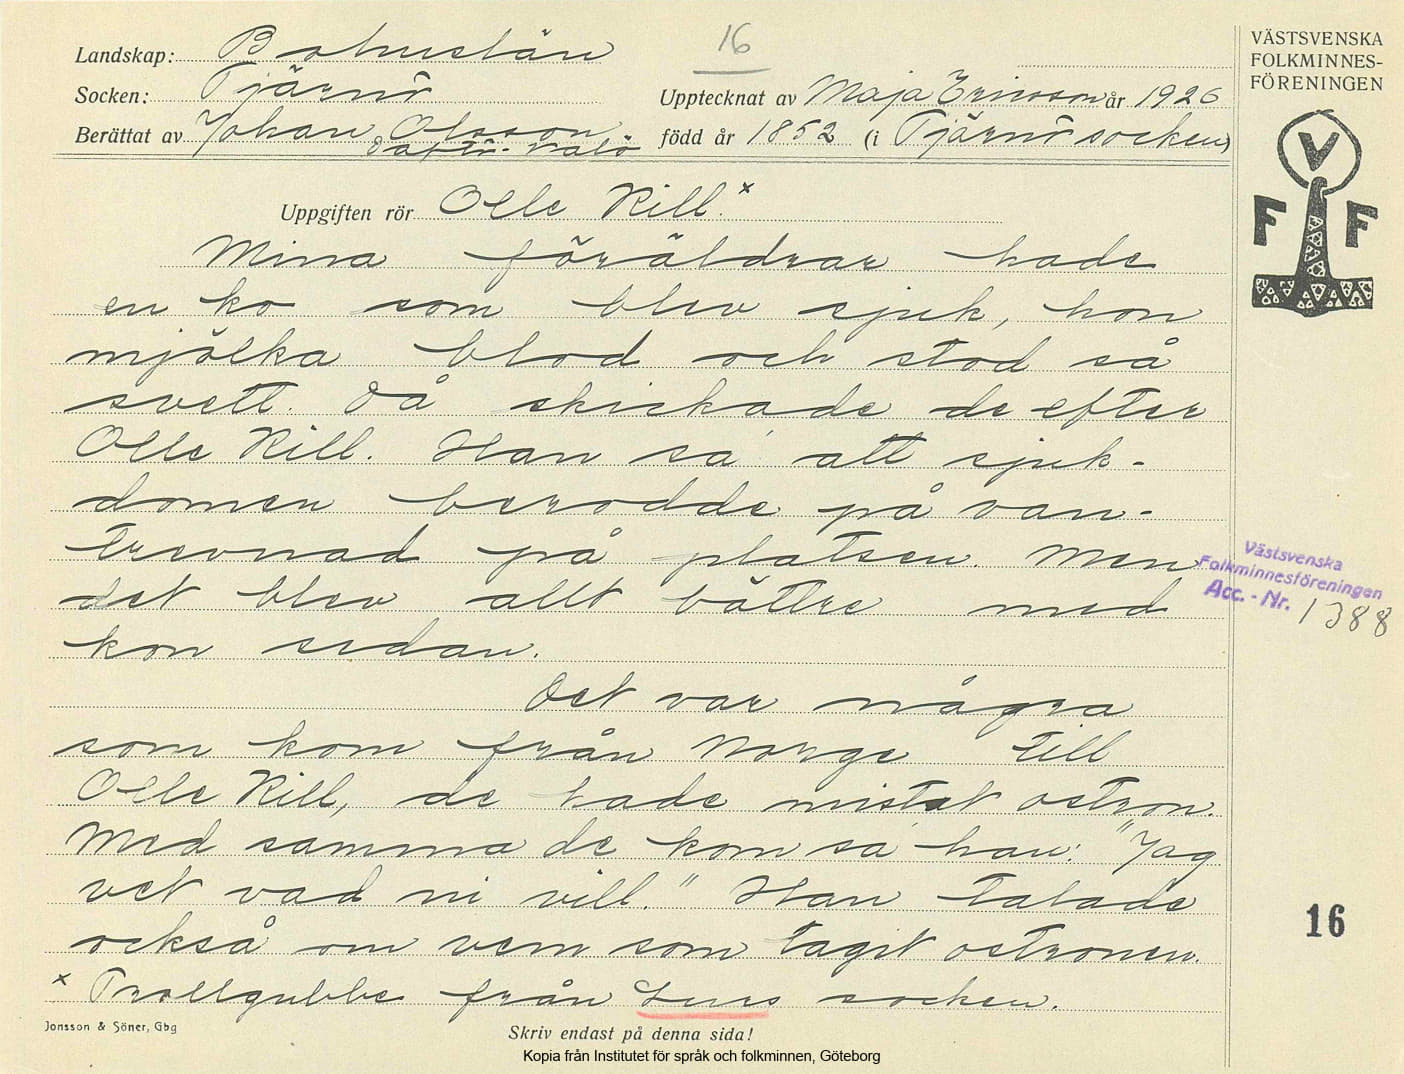 16
VÄSTSVENSKA
FOLKMINNES-
FÖRENINGEN
Landskap: Bohuslän
Socken: Tjärnö
Upptecknat av Maja Ericsson år 1926
Berättat av Johan Olsson
Valö
född år 1852 (i Tjärnö socken)
V
F F
Uppgiften rör Olle Kill.x
Mina föräldrar hade
en ko som blev sjuk, hon
mjölka blod och stod så
svett. Då skickade de efter
Olle Kill. Han sa att sjuk-
domen berodde på van-
trevnad på platsen. Men
det blev allt bättre med
kon sedan.
Det var några
som kom från Norge till
Olle Kill, de hade mistat ostron.
Med samma de kom sa han: "Jag
vet vad ni vill." Han talade
också om vem som tagit ostronen.
x Trollgubbe från Lurs socken.
Västsvenska
Folkminnesföreningen
Acc. - Nr. 1388
16
Jonsson & Söner, Gbg
Skriv endast på denna sida!
Kopia från Institutet för språk och folkminnen, Göteborg